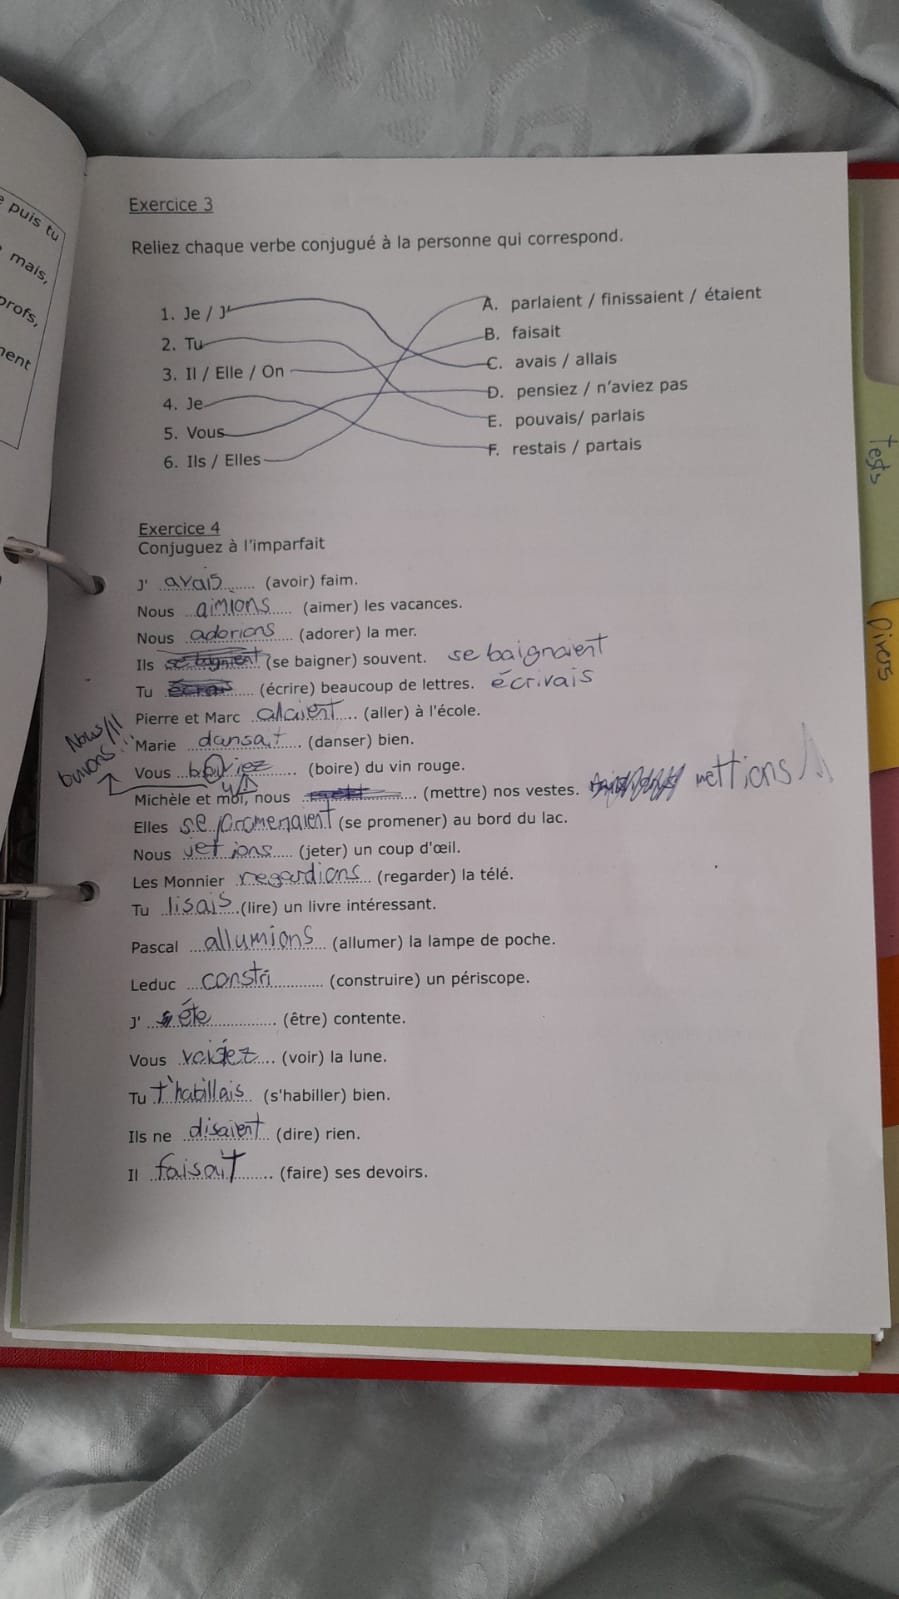 e puis tu
mais,
profs,
ment
Exercice 3
Reliez chaque verbe conjugué à la personne qui correspond.
1. Je / J'
2. Tu
3. Il / Elle / On
4. Je
5. Vous
6. Ils / Elles
A. parlaient / finissaient / étaient
B. faisait
C. avais / allais
D. pensiez / n'aviez pas
E. pouvais/ parlais
F. restais / partais
Exercice 4
Conjuguez à l'imparfait
J' avais (avoir) faim.
Nous aimions (aimer) les vacances.
Nous adorions (adorer) la mer.
Ils (se baigner) souvent. se baignaient
Tu (écrire) beaucoup de lettres. écrivais
Pierre et Marc alaient (aller) à l'école.
Marie dansait (danser) bien.
Nous!!
buvons!!
Vous (boire) du vin rouge.
Michèle et moi, nous (mettre) nos vestes. mettions
Elles se promenaient (se promener) au bord du lac.
Nous jetions (jeter) un coup d'œil.
Les Monnier regardions (regarder) la télé.
Tu lisais (lire) un livre intéressant.
Pascal allumions (allumer) la lampe de poche.
Leduc constri (construire) un périscope.
J' éte (être) contente.
Vous (voir) la lune.
Tu t'habillais (s'habiller) bien.
Ils ne disaient (dire) rien.
Il faisait (faire) ses devoirs.
Tests
Divers